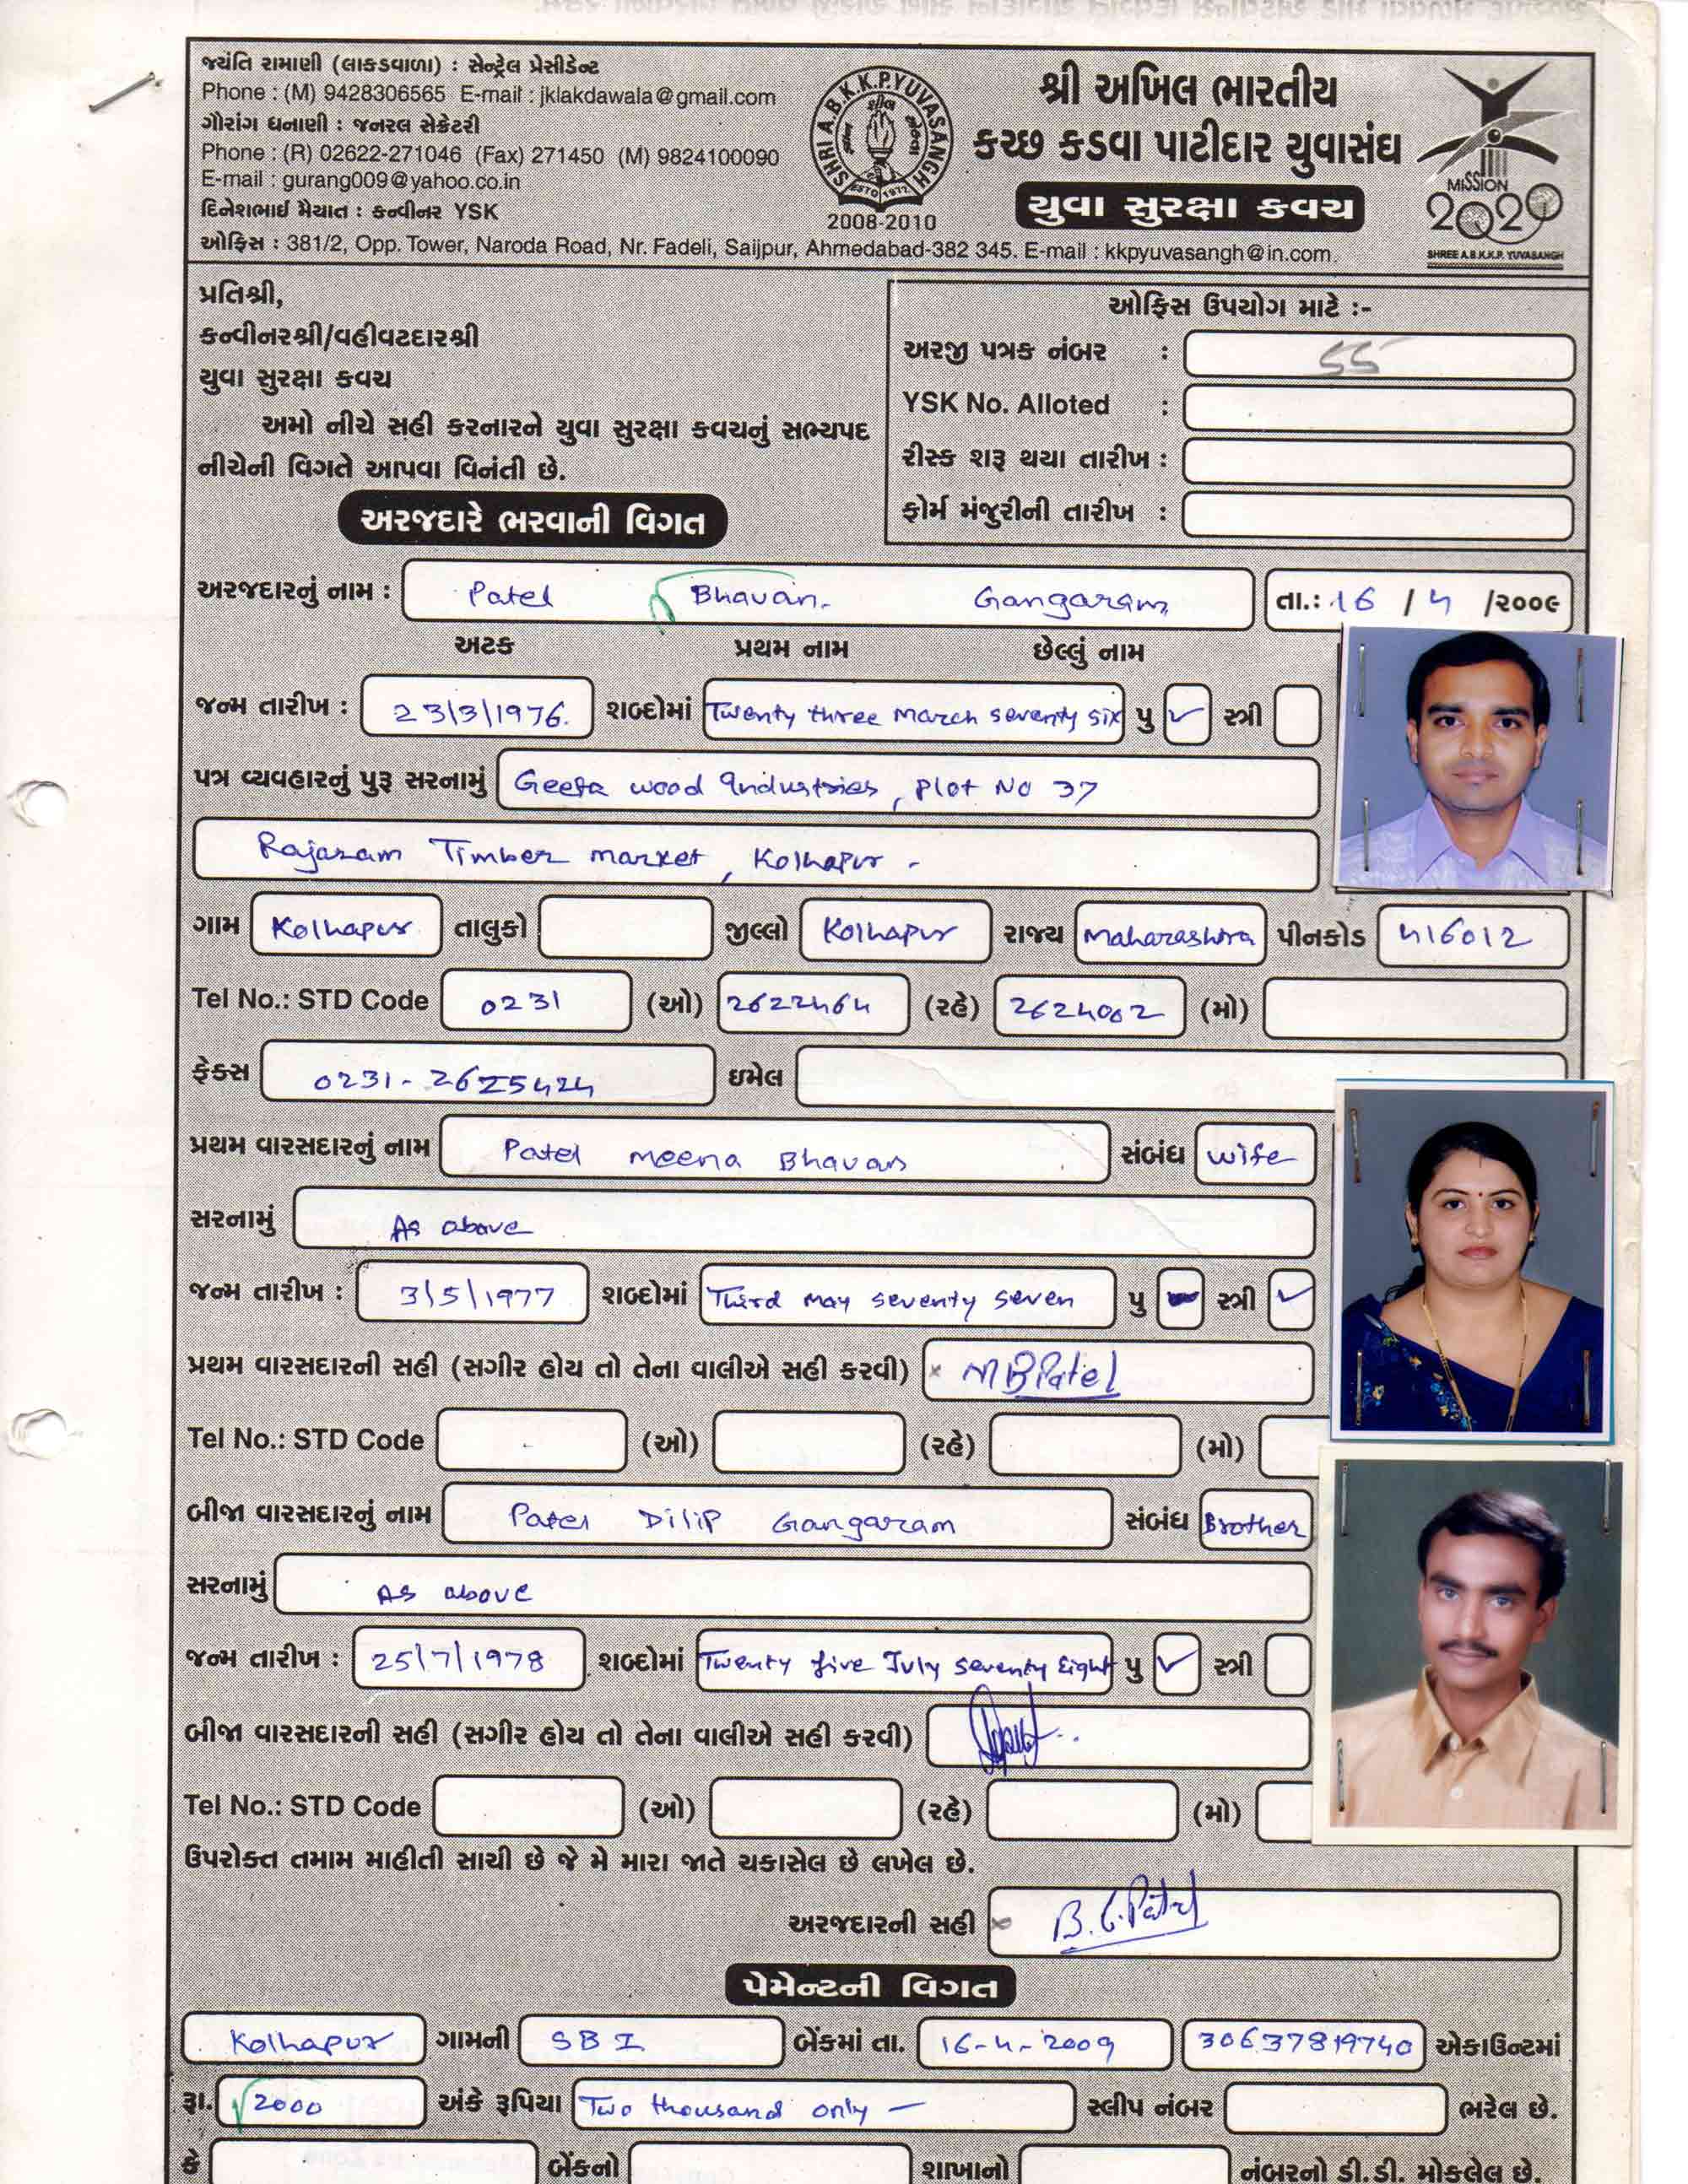 જયંતિ રામાણી (લાકડવાળા) : સેન્ટ્રેલ પ્રેસીડેન્ટ
Phone : (M) 9428306565 E-mail : jklakdawala@gmail.com
ગૌરાંગ ધનાણી : જનરલ સેક્રેટરી
Phone : (R) 02622-271046 (Fax) 271450 (M) 9824100090
E-mail : gurang009@yahoo.co.in
દિનેશભાઈ મૈયાત : કન્વીનર YSK
SHRI A.B.K.K.P.YUVASANGH
ESTD 1972
2008-2010
શ્રી અખિલ ભારતીય
કચ્છ કડવા પાટીદાર યુવાસંઘ
યુવા સુરક્ષા કવચ
MISSION
2020
SHREE A.B.K.K.P. YUVASANGH
ઓફિસ : 381/2, Opp. Tower, Naroda Road, Nr. Fadeli, Saijpur, Ahmedabad-382 345. E-mail : kkpyuvasangh@in.com.
પ્રતિશ્રી,
કન્વીનરશ્રી/વહીવટદારશ્રી
યુવા સુરક્ષા કવચ
અમો નીચે સહી કરનારને યુવા સુરક્ષા કવચનું સભ્યપદ
નીચેની વિગતે આપવા વિનંતી છે.
ઓફિસ ઉપયોગ માટે :-
અરજી પત્રક નંબર : 55
YSK No. Alloted :
રીસ્ક શરૂ થયા તારીખ :
ફોર્મ મંજુરીની તારીખ :
અરજદારે ભરવાની વિગત
અરજદારનું નામ : Patel Bhavan. Gangaram તા.: 16 / 4 /૨૦૦૯
અટક પ્રથમ નામ છેલ્લું નામ
જન્મ તારીખ : 23/3/1976. શબ્દોમાં Twenty three March seventy six પુ ✓ સ્ત્રી
પત્ર વ્યવહારનું પુરૂ સરનામું Geeta wood Industries, Plot No 37
Rajaram Timber market, Kolhapur -
ગામ Kolhapur તાલુકો જીલ્લો Kolhapur રાજ્ય Maharashtra પીનકોડ 416012
Tel No.: STD Code 0231 (ઓ) 2622464 (રહે) 2624002 (મો)
ફેક્સ 0231-2625424 ઇમેલ
પ્રથમ વારસદારનું નામ Patel Meena Bhavan સંબંધ wife
સરનામું As above
જન્મ તારીખ : 3/5/1977 શબ્દોમાં Third May seventy seven પુ સ્ત્રી ✓
પ્રથમ વારસદારની સહી (સગીર હોય તો તેના વાલીએ સહી કરવી) × MBPatel
Tel No.: STD Code (ઓ) (રહે) (મો)
બીજા વારસદારનું નામ Patel Dilip Gangaram સંબંધ Brother
સરનામું As above
જન્મ તારીખ : 25/7/1978 શબ્દોમાં Twenty five July seventy Eight પુ ✓ સ્ત્રી
બીજા વારસદારની સહી (સગીર હોય તો તેના વાલીએ સહી કરવી)
Tel No.: STD Code (ઓ) (રહે) (મો)
ઉપરોક્ત તમામ માહીતી સાચી છે જે મે મારા જાતે ચકાસેલ છે લખેલ છે.
અરજદારની સહી × B.G.Patel
પેમેન્ટની વિગત
Kolhapur ગામની SBI બેંકમાં તા. 16-4-2009 30637819740 એકાઉન્ટમાં
રૂા. 2000 અંકે રૂપિયા Two thousand only — સ્લીપ નંબર ભરેલ છે.
કે બેંકનો શાખાનો નંબરનો ડી.ડી. મોકલેલ છે.